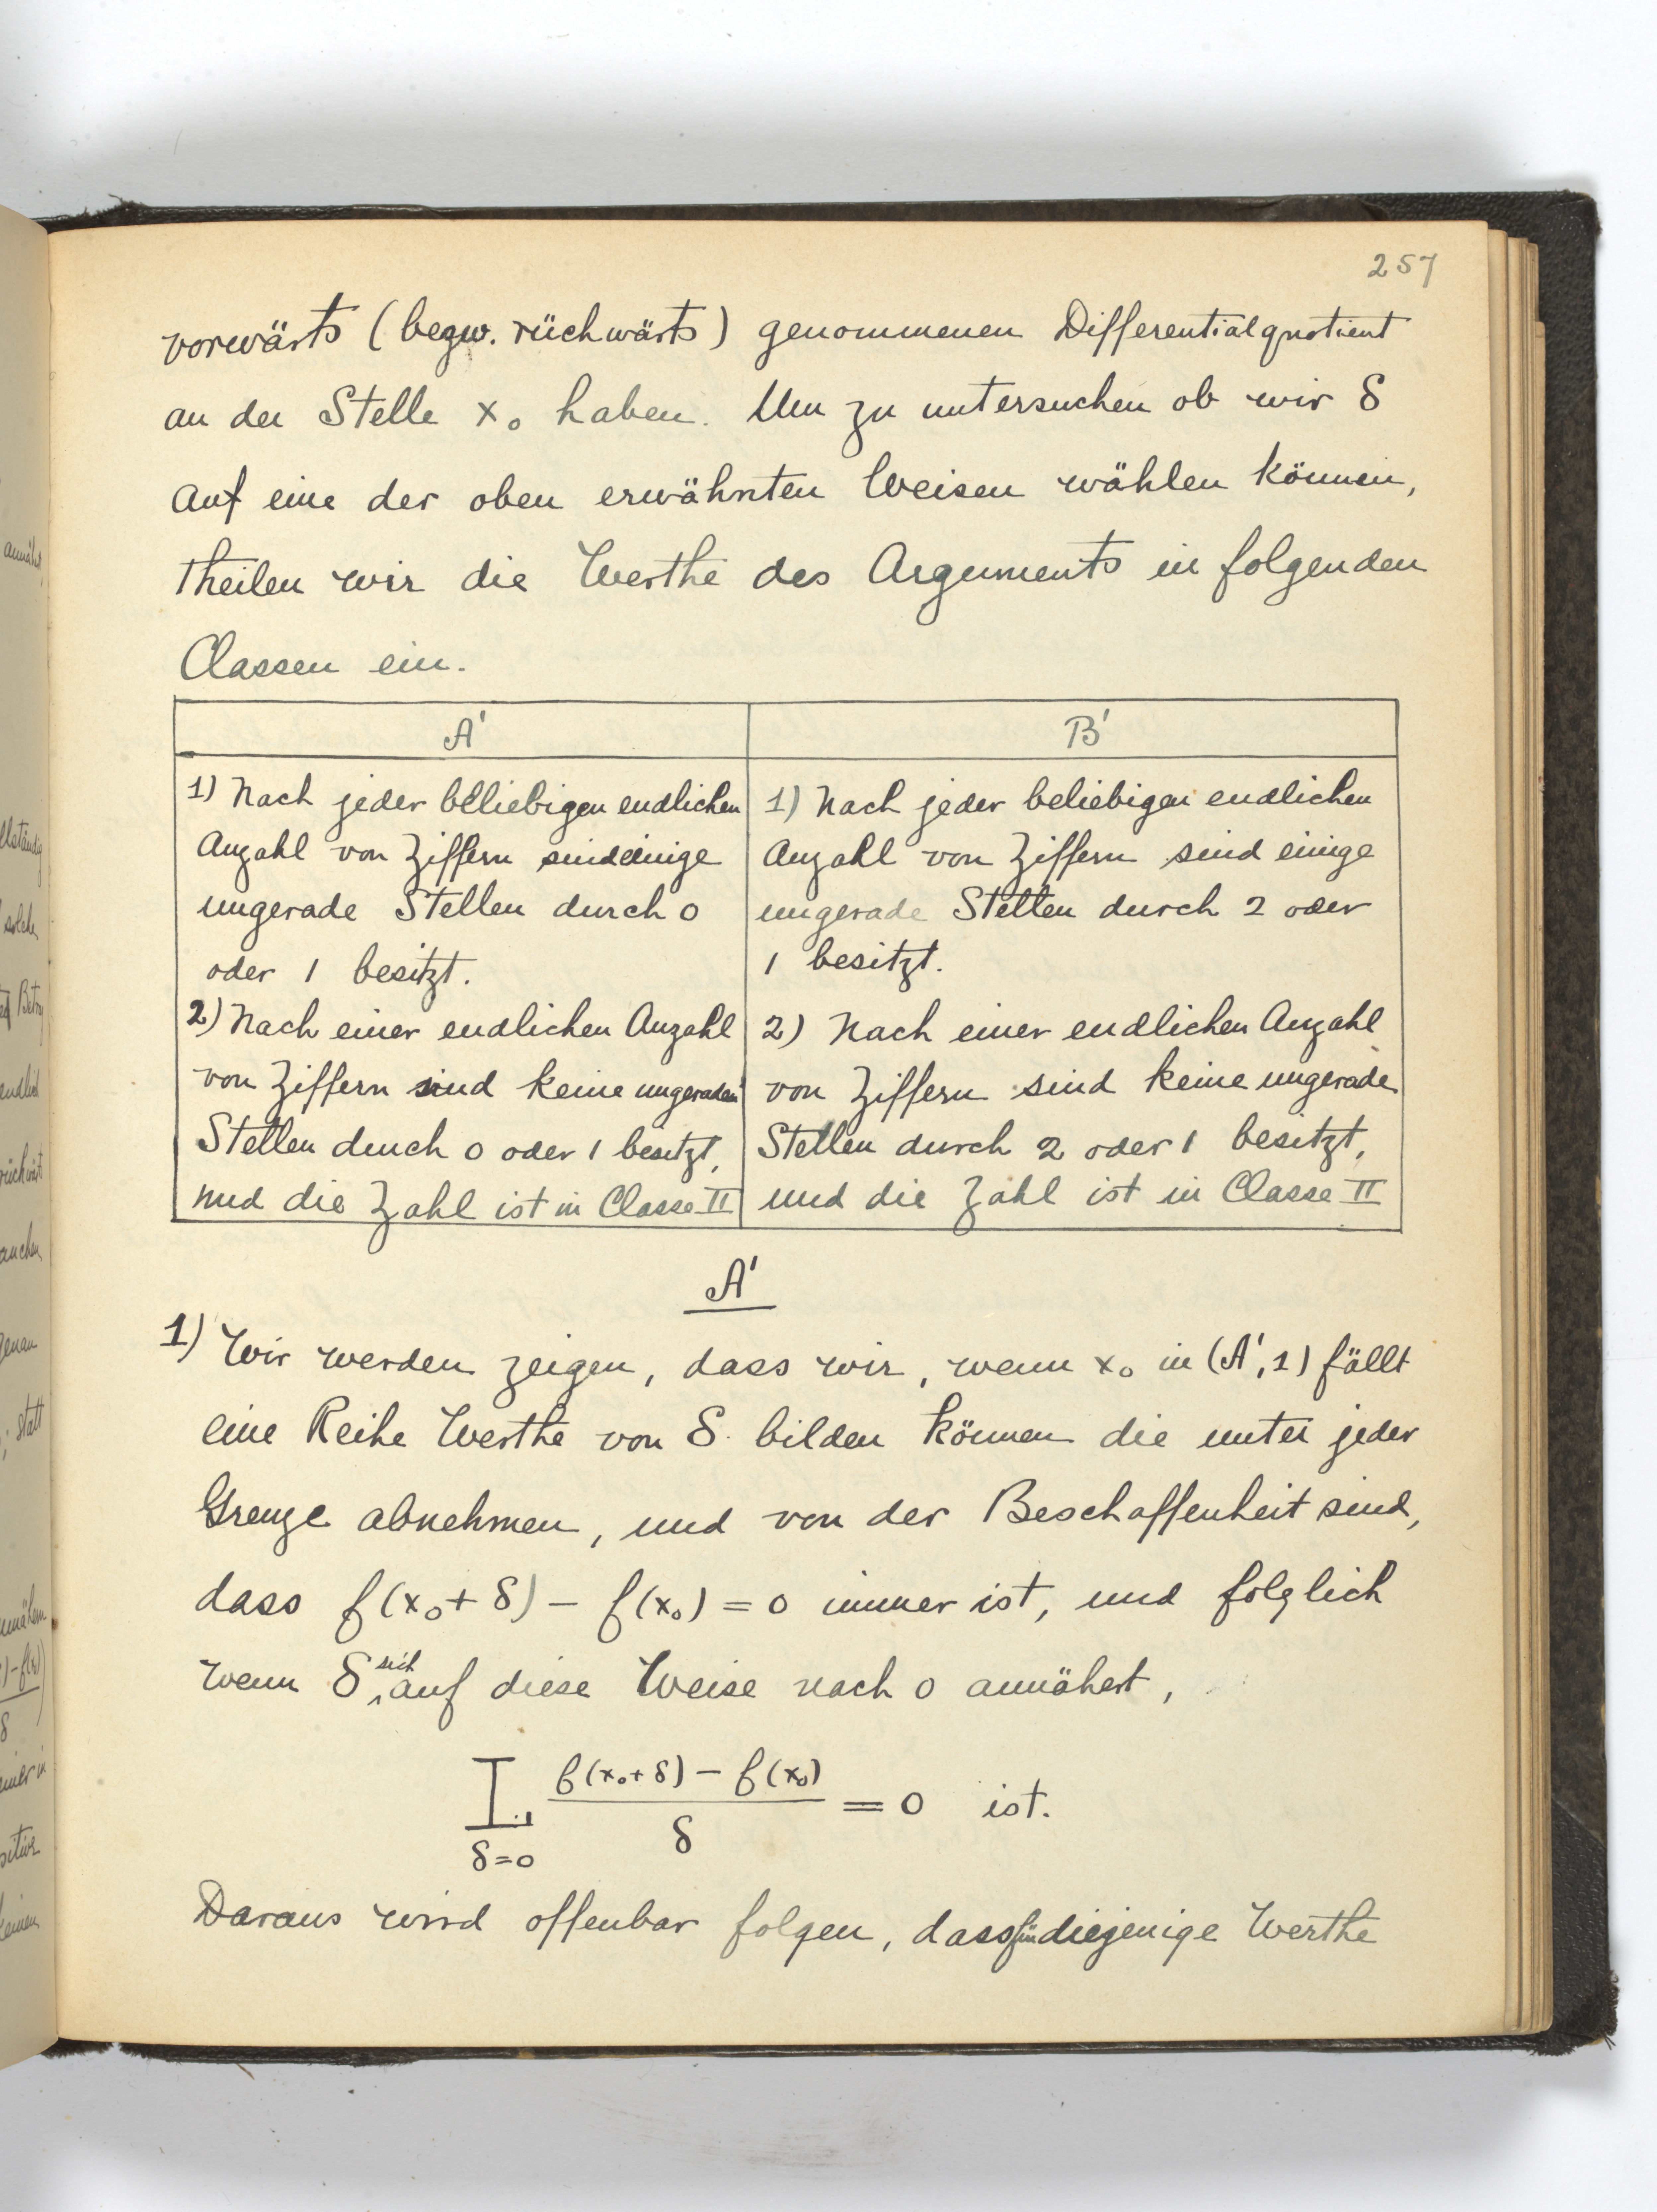 257
vorwärts (bezw. rückwärts) genommenen Differentialquotient
an der Stelle x₀ haben. Um zu untersuchen ob wir δ
auf eine der oben erwähnten Weisen wählen können,
theilen wir die Werthe des Arguments in folgenden
Classen ein.
A'
1) Nach jeder beliebigen endlichen
Anzahl von Ziffern sind einige
ungerade Stellen durch 0
oder 1 besitzt.
2) Nach einer endlichen Anzahl
von Ziffern sind keine ungeraden
Stellen durch 0 oder 1 besitzt,
und die Zahl ist in Classe II
B'
1) Nach jeder beliebigen endlichen
Anzahl von Ziffern sind einige
ungerade Stellen durch 2 oder
1 besitzt.
2) Nach einer endlichen Anzahl
von Ziffern sind keine ungerade
Stellen durch 2 oder 1 besitzt,
und die Zahl ist in Classe II
A'
1) Wir werden zeigen, dass wir, wenn x₀ in (A', 1) fällt
eine Reihe Werthe von δ bilden können die unter jeder
Grenze abnehmen, und von der Beschaffenheit sind,
dass f(x₀+δ) – f(x₀) = 0 immer ist, und folglich
wenn δ sich auf diese Weise nach 0 annähert,
f(x₀+δ) – f(x₀)
= 0 ist.
δ
δ=0
Daraus wird offenbar folgen, dass für diejenige Werthe
annähert,